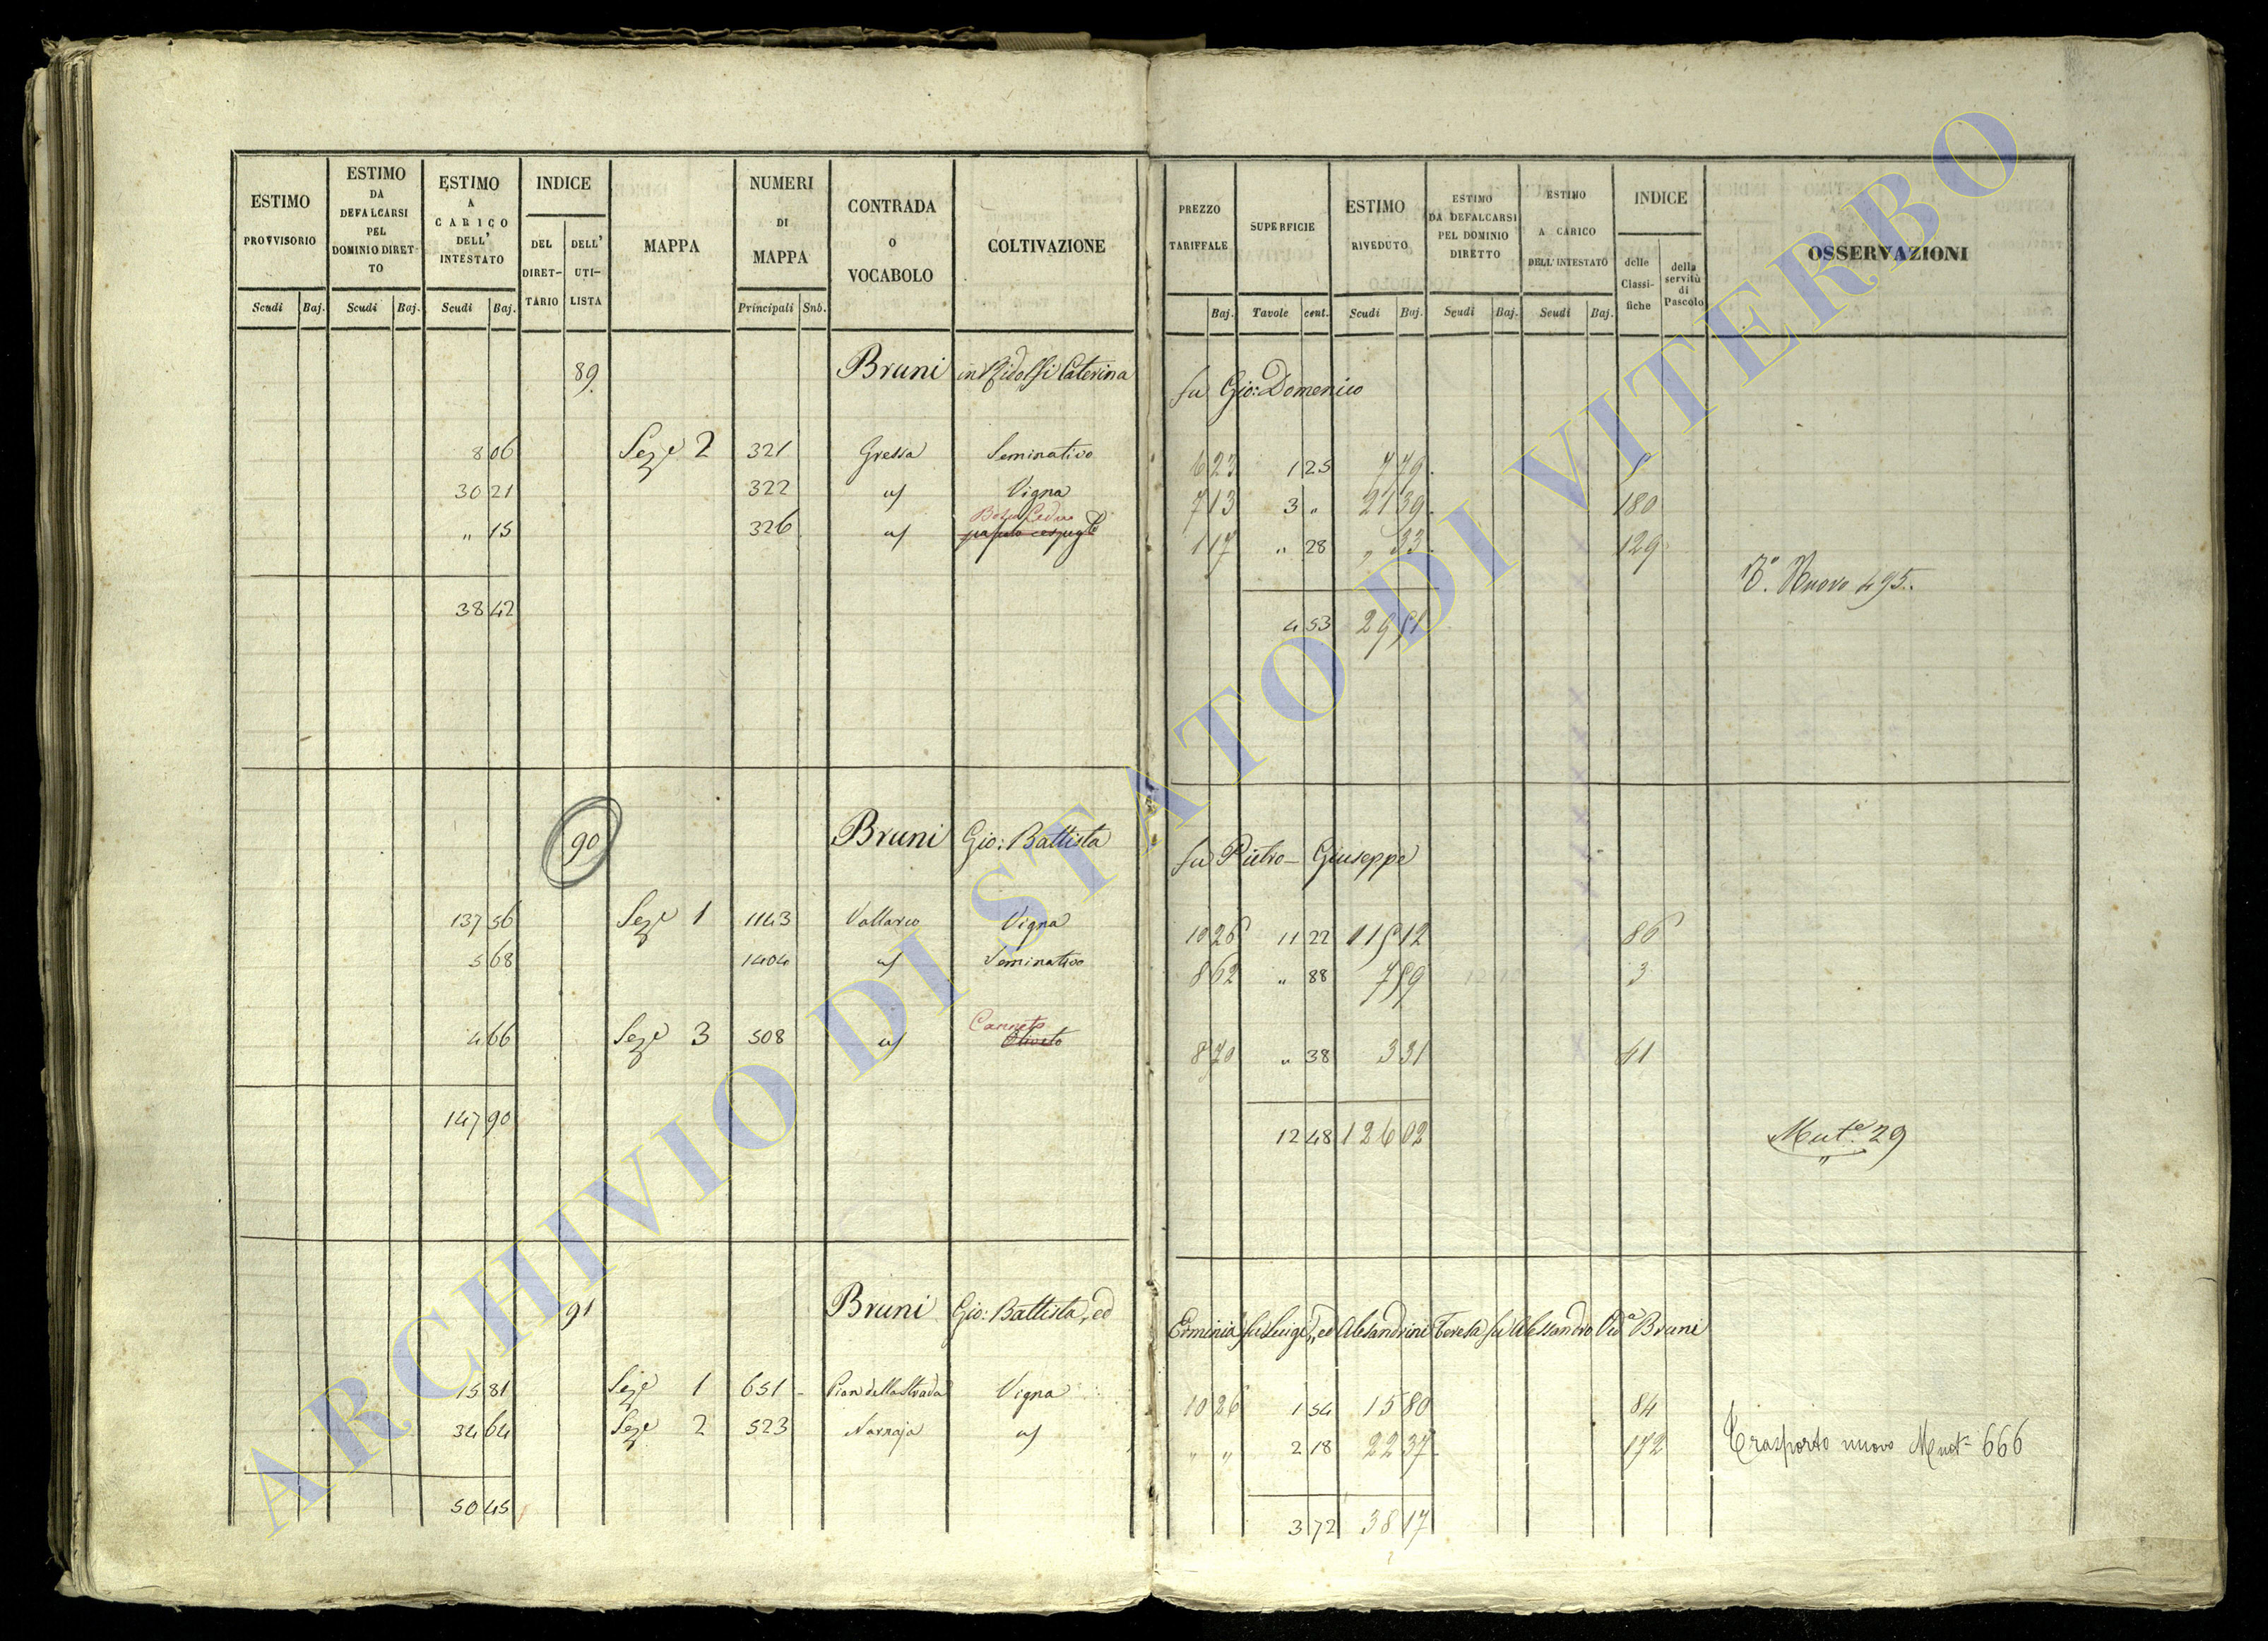 ESTIMO PROVVISORIO
Scudi Baj.
ESTIMO DA DEFALCARSI PEL DOMINIO DIRETTO
Scudi Baj.
ESTIMO A CARICO DELL' INTESTATO
Scudi Baj.
INDICE
DEL DIRETTARIO
DELL' UTILISTA
MAPPA
NUMERI DI MAPPA
Principali Snb.
CONTRADA O VOCABOLO
COLTIVAZIONE
PREZZO TARIFFALE
Baj.
SUPERFICIE
Tavole cent.
ESTIMO RIVEDUTO
Scudi Baj.
ESTIMO DA DEFALCARSI PEL DOMINIO DIRETTO
Scudi Baj.
ESTIMO A CARICO DELL'INTESTATO
Scudi Baj.
INDICE
delle Classifiche
della servitù di Pascolo
OSSERVAZIONI
89. Bruni in Ridolfi Caterina fu Gio: Domenico
8 06 Seze 2 321 Gressa Seminativo 6 23 1 25 7 79
30 21 322 " Vigna 7 13 3 " 21 39 180
" 15 326 " Bosco Ceduo pascolo cespugto 1 17 " 28 " 33 129
38 42 4 53 29 51
To. Nuovo 495.
90 Bruni Gio: Battista fu Pietro-Giuseppe
137 56 Seze 1 1143 Vallarco Vigna 10 26 11 22 115 12 86
5 68 1404 " Seminativo 8 62 " 88 7 59 3
4 66 Seze 3 508 " Canneto Oliveto 8 70 " 38 3 31 41
147 90 12 48 126 02
Mute. 29
91 Bruni Gio: Battista, ed Erminia fu Luigi, ed Alesandrini Teresa fu Alessandro Veda Bruni
15 81 Seze 1 651 Pian della Strada Vigna 10 26 1 54 15 80 84
34 64 Seze 2 523 Narnaja " " " 2 18 22 37 172
Trasporto nuovo Mut- 666
50 45 3 72 38 17
ARCHIVIO DI STATO DI VITERBO